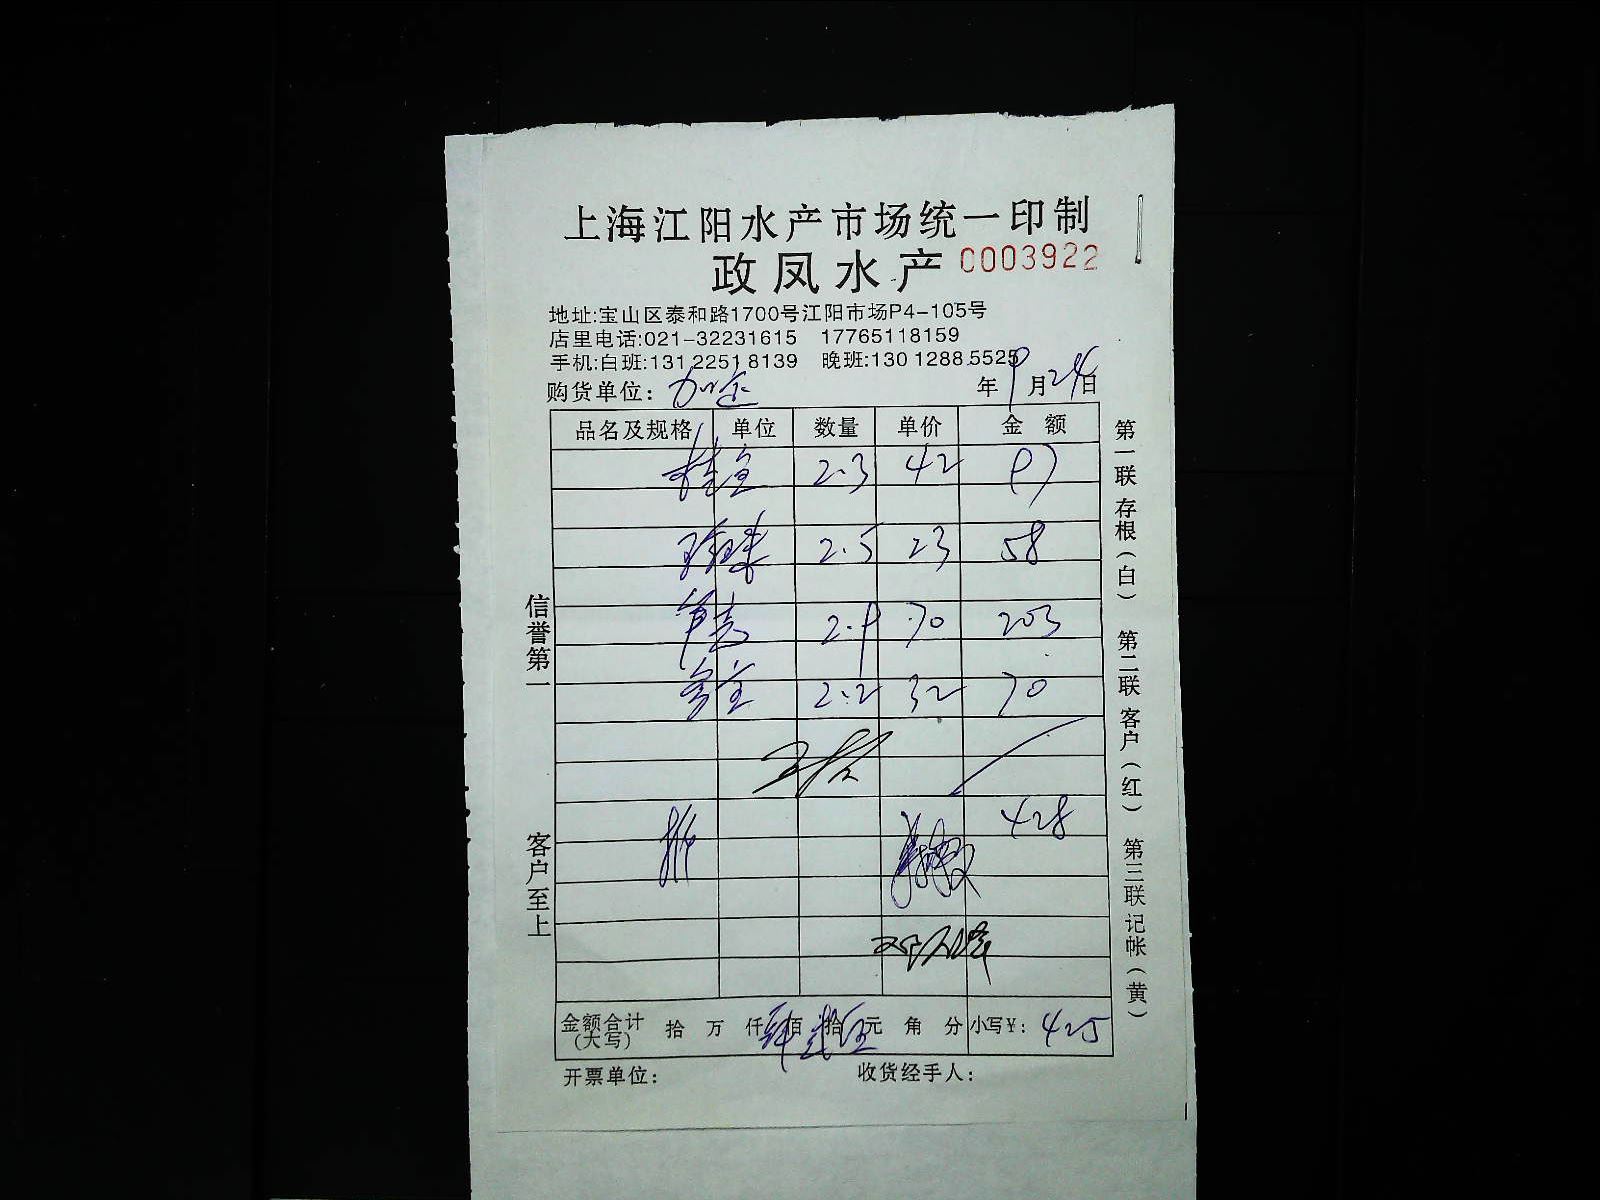 上海江阳水产市场统一印制
政凤水产 0003922
地址:宝山区泰和路1700号江阳市场P4-105号
店里电话:021-32231615 17765118159
手机:白班:131 2251 8139 晚班:130 1288 5525
购货单位: 年9月24日
品名及规格 单位 数量 单价 金额
2.3 42 97
2.5 23 58
2.9 70 203
2.2 32 70
428
金额合计(大写) 拾 万 仟 肆佰 贰拾 伍元 角 分 小写¥: 425
开票单位: 收货经手人:
信誉第一
客户至上
第一联 存根(白) 第二联 客户(红) 第三联 记帐(黄)